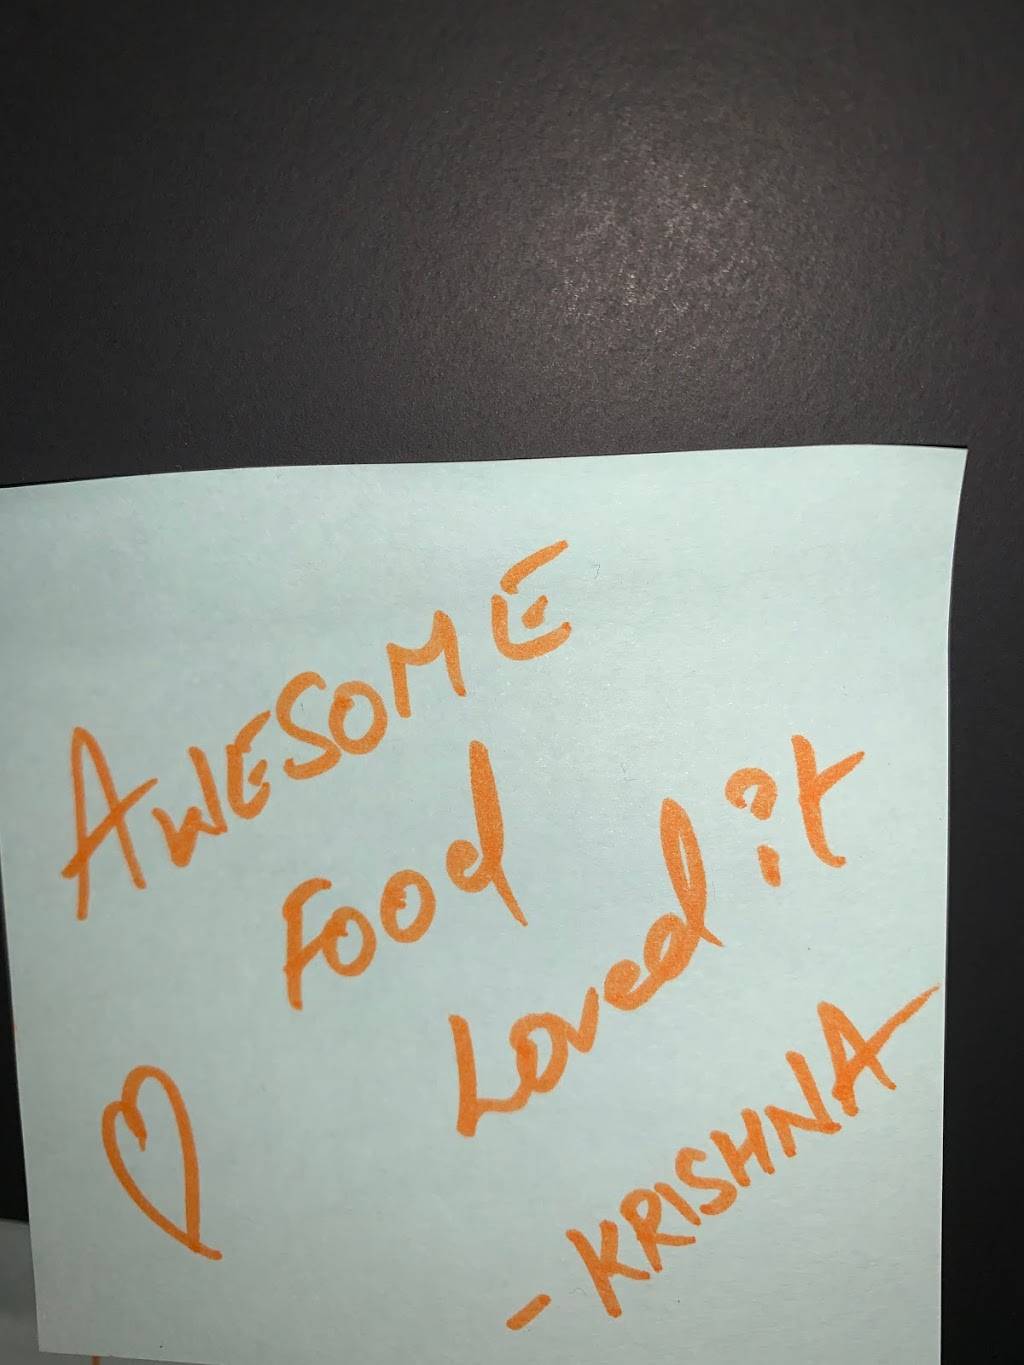 AWESOME
Food
Loved it
- KRISHNA